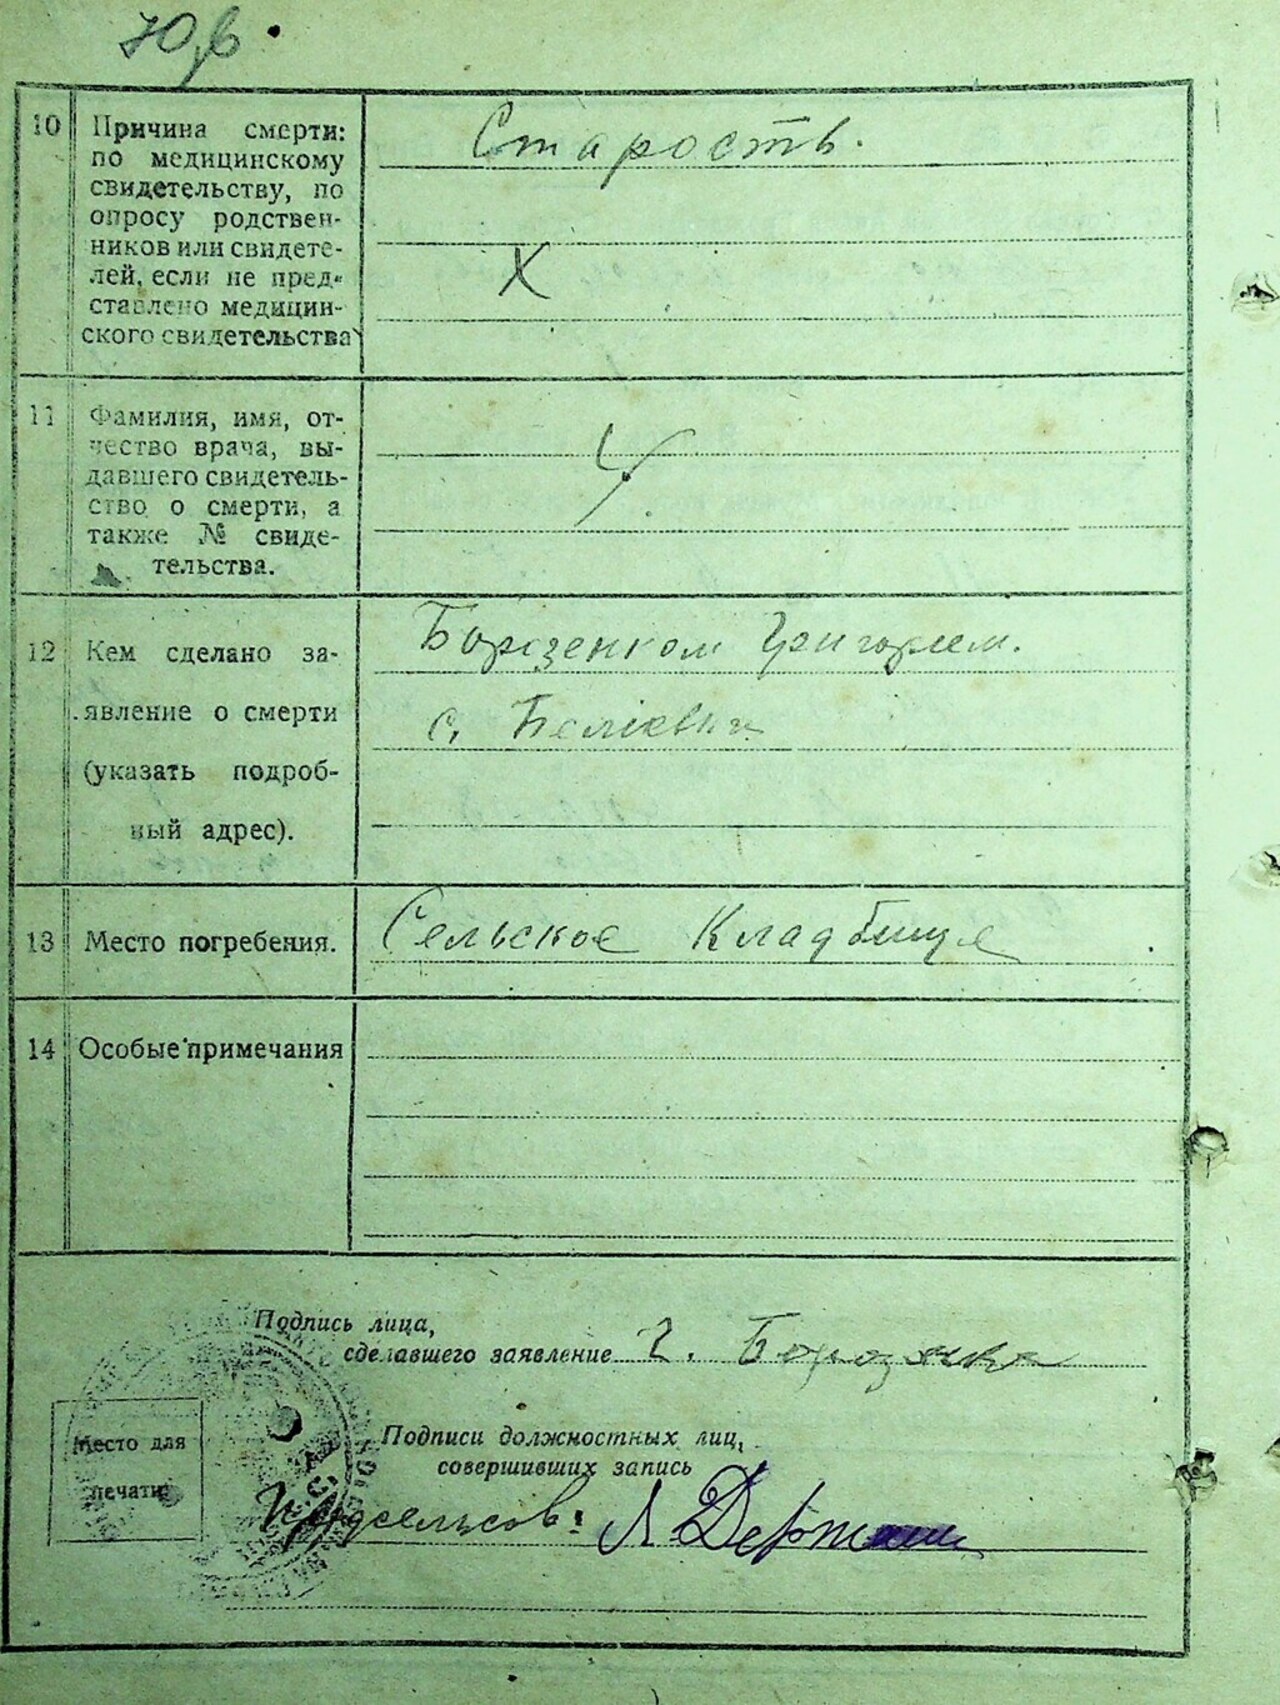 10
Причина смерти:
по медицинскому
свидетельству, по
опросу родствен-
ников или свидете-
лей, если не пред-
ставлено медицин-
ского свидетельства
Старость.
Х
11
Фамилия, имя, от-
чество врача, вы-
давшего свидетель-
ство о смерти, а
также № свиде-
тельства.
12
Кем сделано за-
явление о смерти
(указать подроб-
ный адрес).
Борозенком Григорием.
с.
13
Место погребения.
Сельское Кладбище
14
Особые примечания
Подпись лица,
сделавшего заявление Г.
Подписи должностных лиц,
совершивших запись
Место для
печати
Предсельсов: